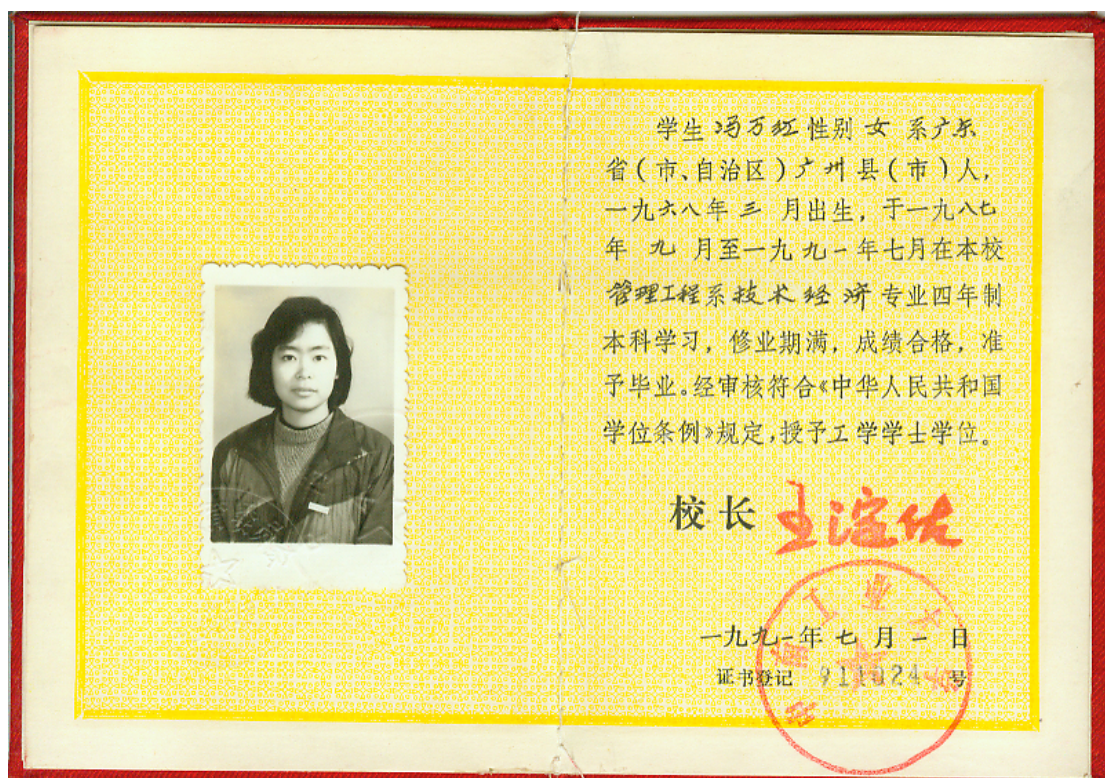 学生 冯万红 性别 女 系 广东
省(市、自治区)广州县(市)人,
一九六八年 三 月出生,于一九八七
年 九 月至一九九一年七月在本校
管理工程系技术经济专业四年制
本科学习,修业期满,成绩合格,准
予毕业。经审核符合《中华人民共和国
学位条例》规定,授予工学学士学位。
校长 王淀佐
一九九一年七月一日
证书登记 911024 号
中南工业大学